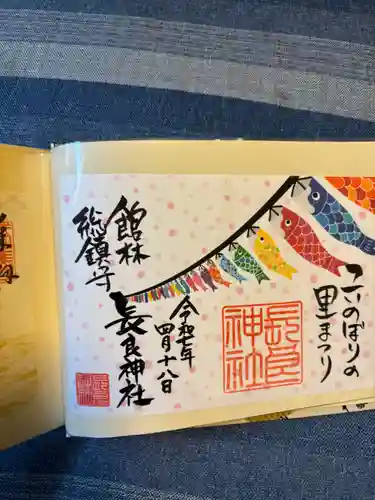 こいのぼりの
里まつり
令和七年
四月十八日
長良神社
館林
総鎮守
長良神社
長良神社